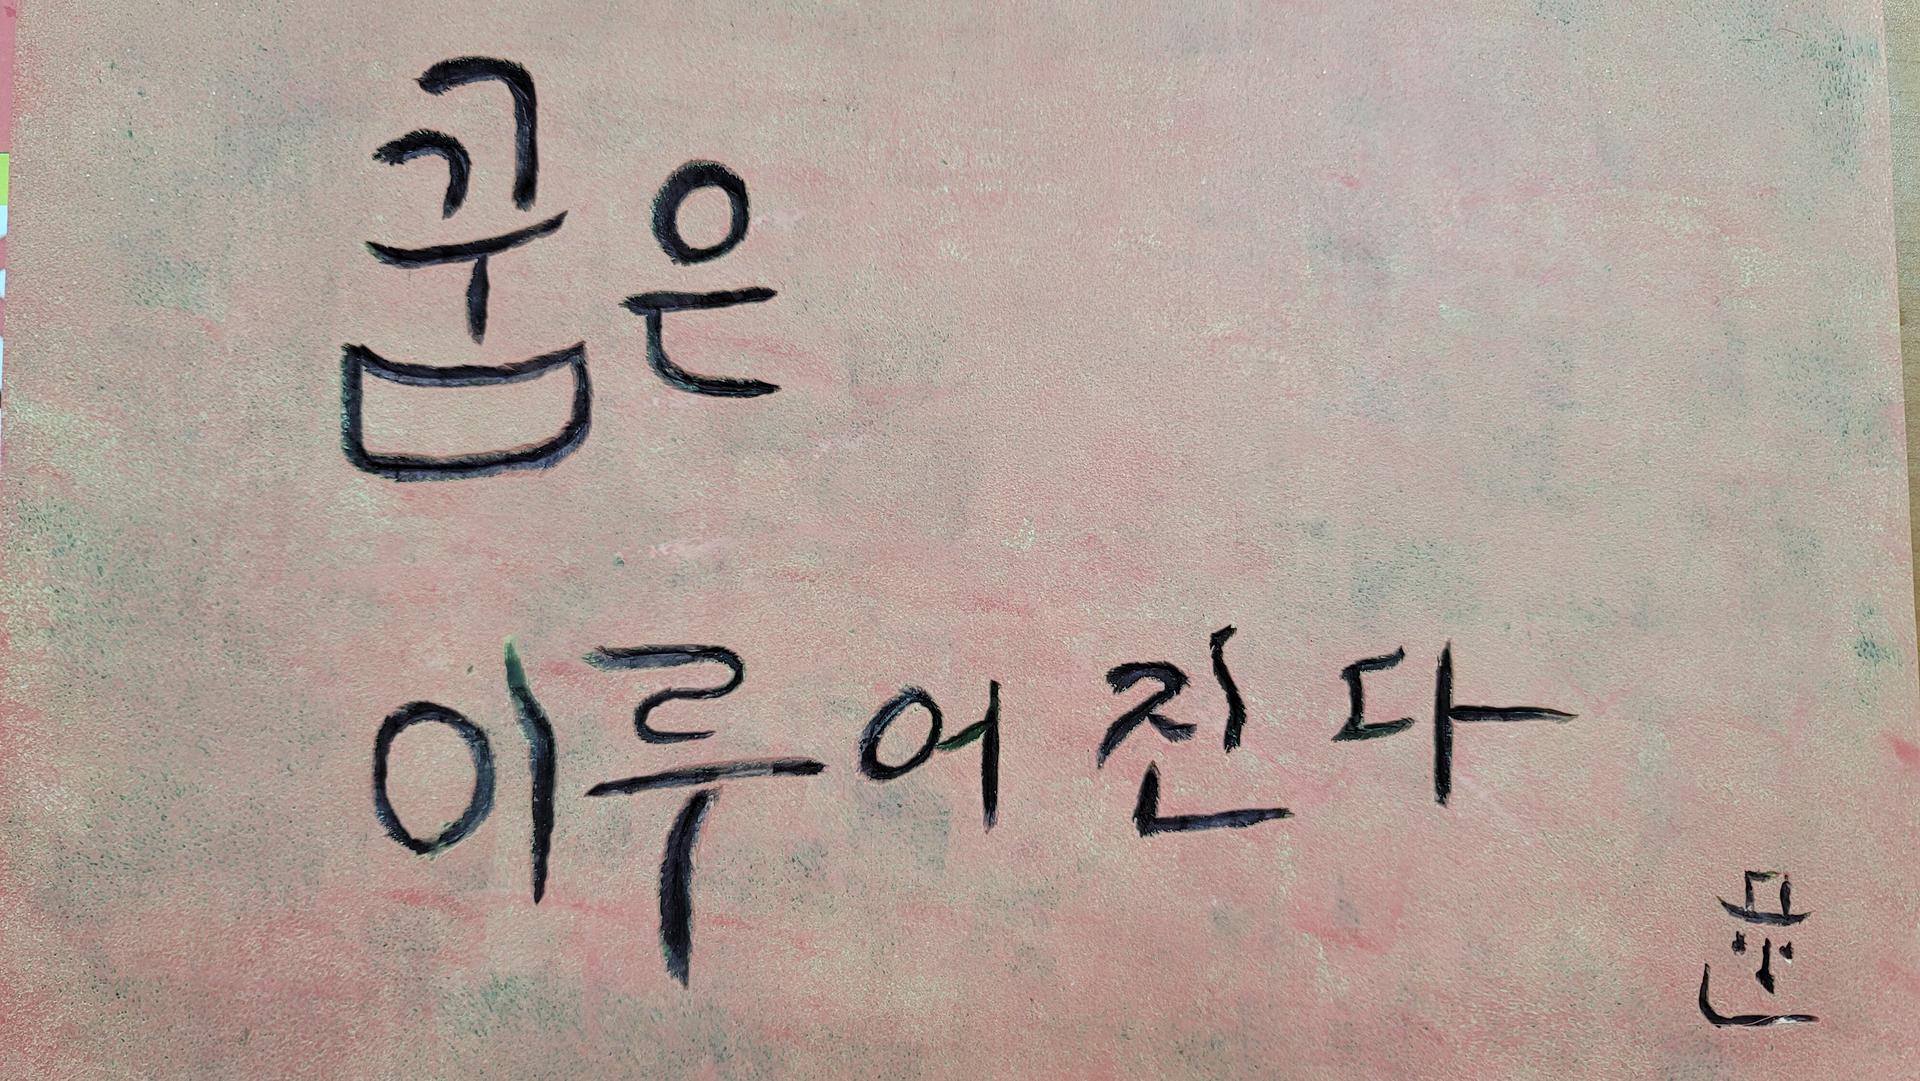 꿈은
이루어진다
문